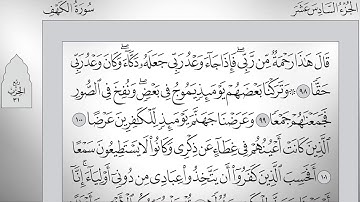 الجزء السادس عشر
سورة الكهف
ربع
الحزب
٣١
قَالَ هَٰذَا رَحْمَةٌ مِّن رَّبِّي ۖ فَإِذَا جَاءَ وَعْدُ رَبِّي جَعَلَهُ دَكَّاءَ ۖ وَكَانَ وَعْدُ رَبِّي
حَقًّا ٩٨ ۞ وَتَرَكْنَا بَعْضَهُمْ يَوْمَئِذٍ يَمُوجُ فِي بَعْضٍ ۖ وَنُفِخَ فِي الصُّورِ
فَجَمَعْنَاهُمْ جَمْعًا ٩٩ وَعَرَضْنَا جَهَنَّمَ يَوْمَئِذٍ لِّلْكَافِرِينَ عَرْضًا ١٠٠
الَّذِينَ كَانَتْ أَعْيُنُهُمْ فِي غِطَاءٍ عَن ذِكْرِي وَكَانُوا لَا يَسْتَطِيعُونَ سَمْعًا
١٠١ أَفَحَسِبَ الَّذِينَ كَفَرُوا أَن يَتَّخِذُوا عِبَادِي مِن دُونِي أَوْلِيَاءَ ۚ إِنَّا